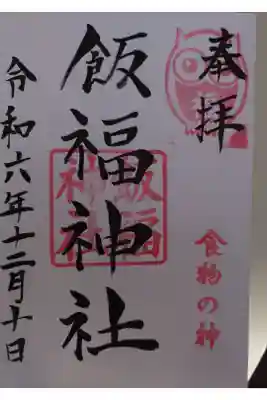 奉拝
食物の神
飯福神社
飯福
神社
令和六年十二月十日